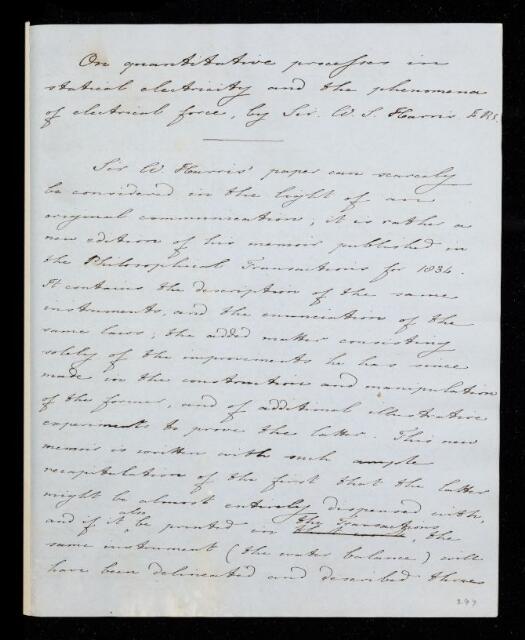 On quantitative processes in
statical electricity and the phenomena
of electrical force, by Sir. W. S. Harris F.R.S.
Sir W. Harris' paper can scarcely
be considered in the light of an
original communication; it is rather a
new edition of his memoir published in
the Philosophical Transactions for 1834.
It contains the description of the same
instruments, and the enunciation of the
same laws; the added matter consisting
solely of the improvements he has since
made in the construction and manipulation
of the former, and of additional illustrative
experiments to prove the latter. This new
memoir is written with such ample
recapitulation of the first that the latter
might be almost entirely dispensed with,
and if it also be printed in the Transactions, the
same instrument (the water balance) will
have been delineated and described three